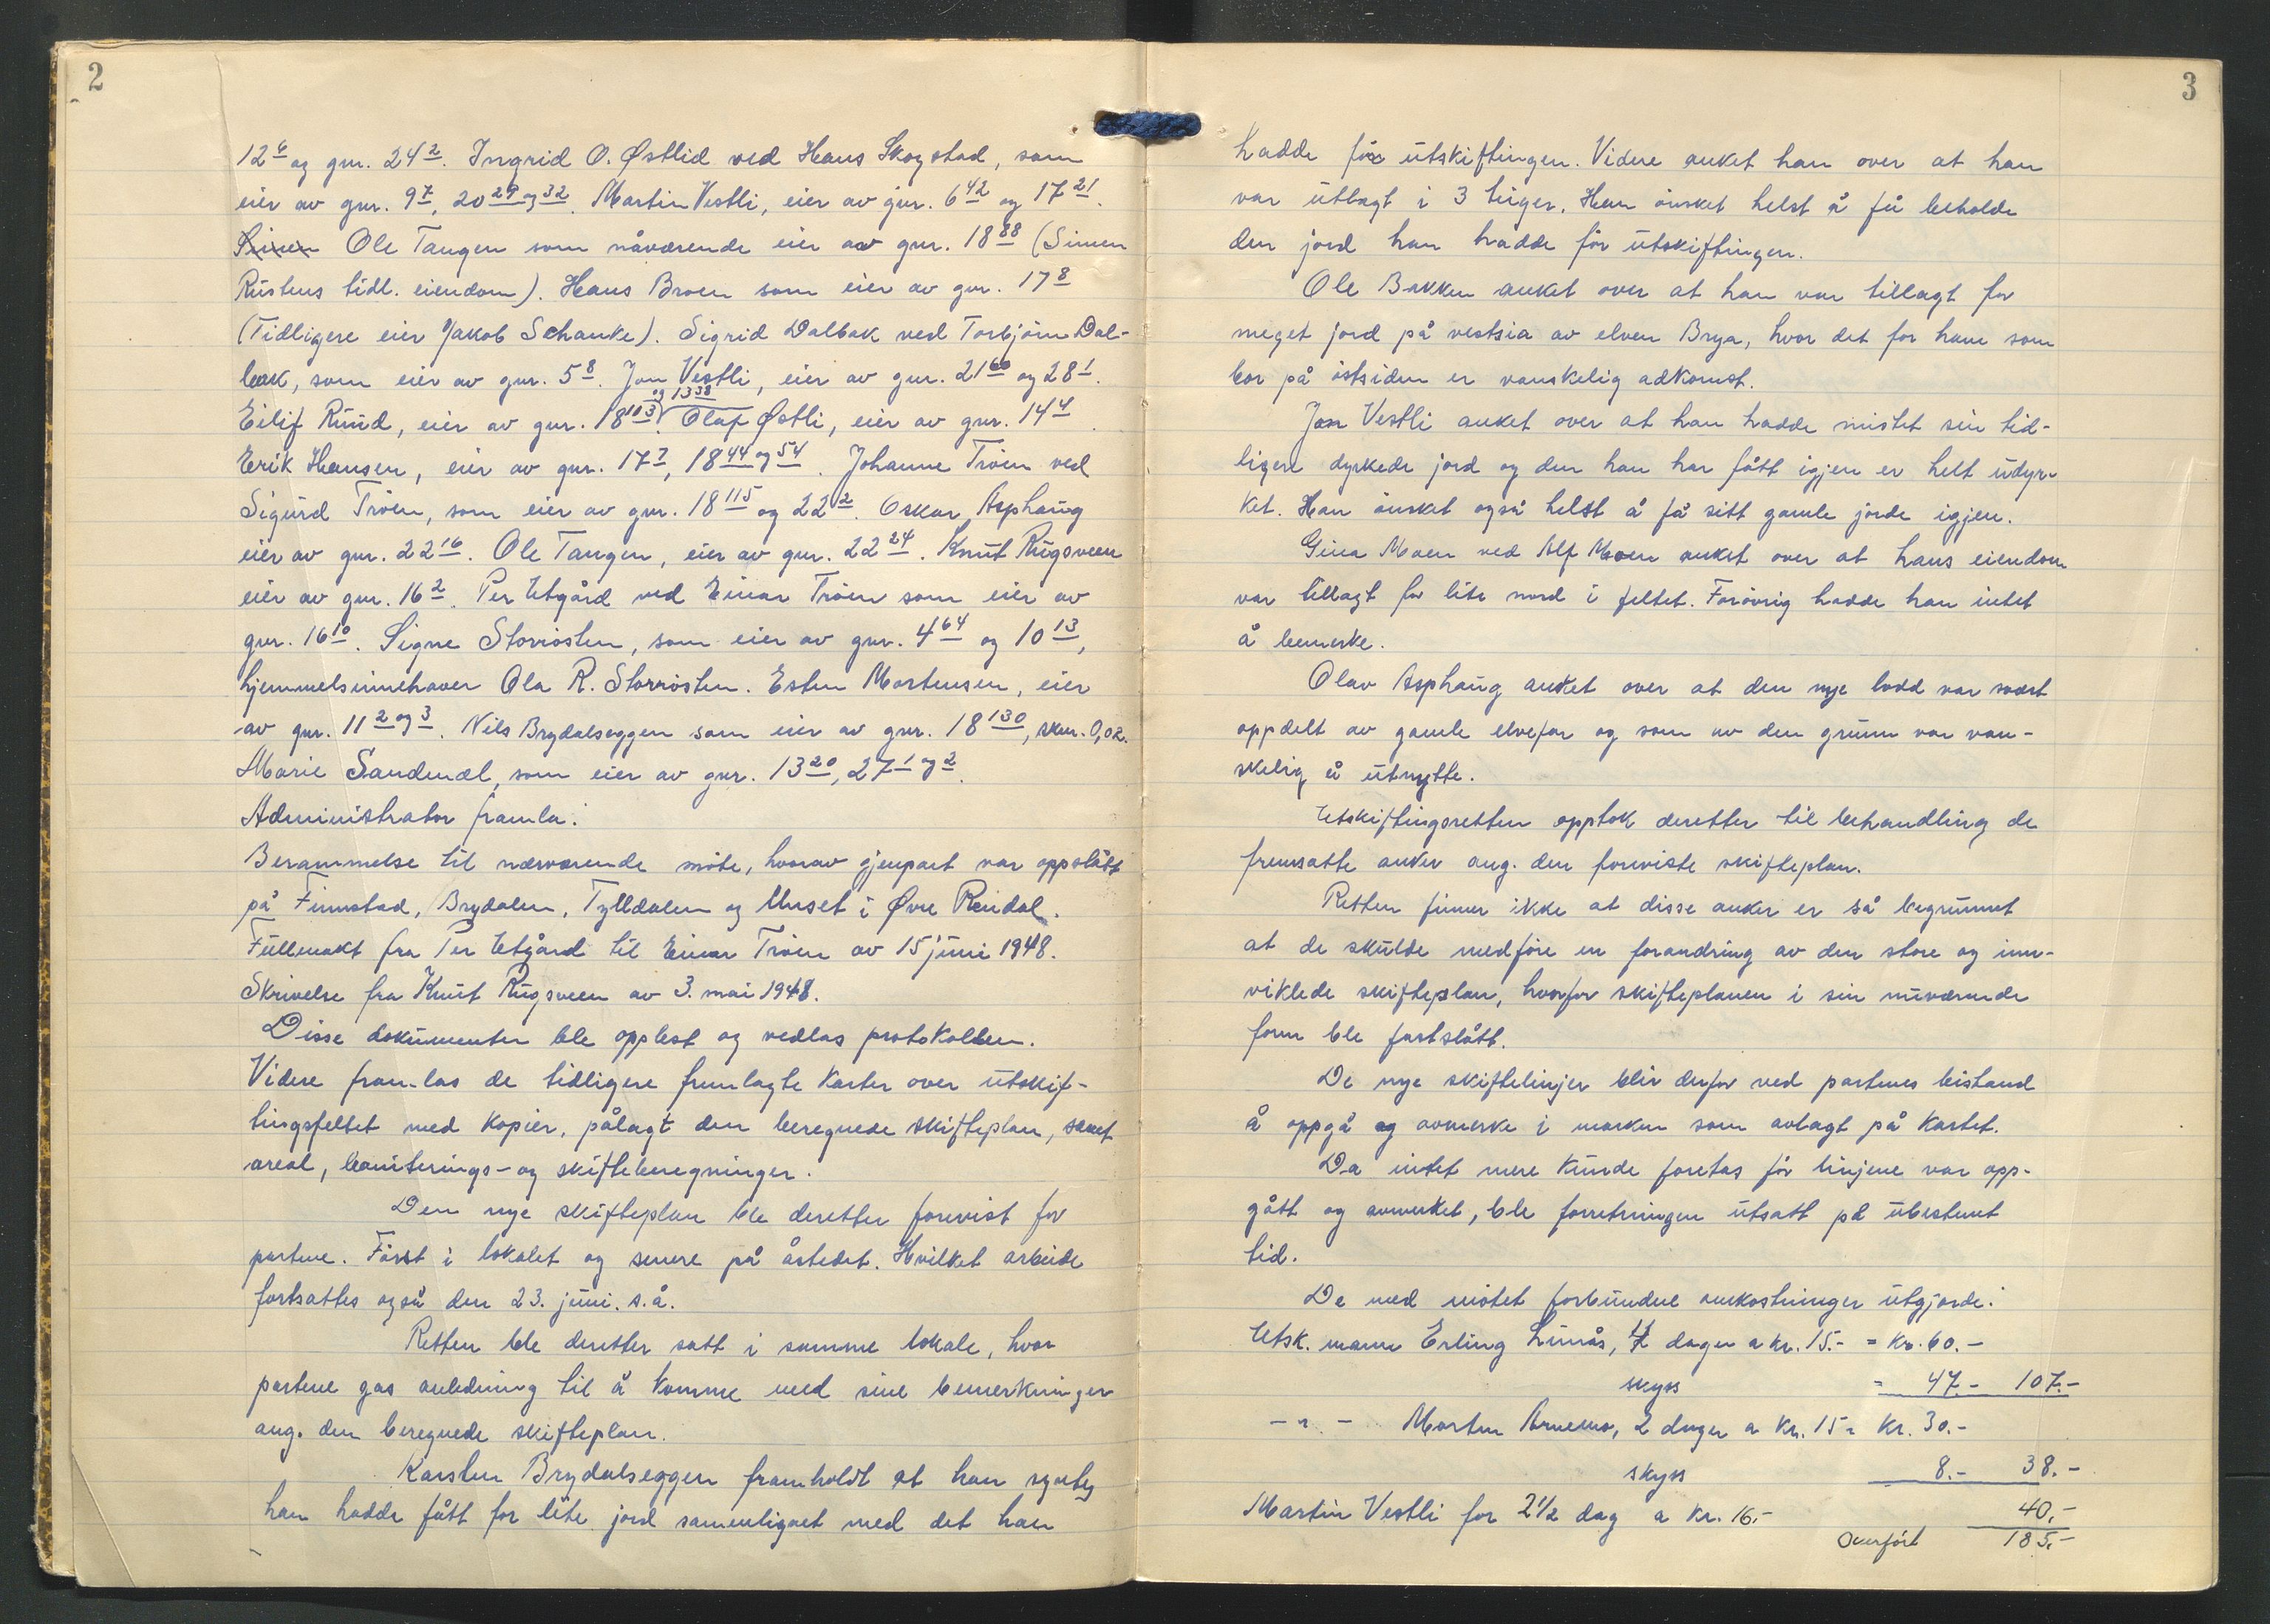 2
12⁶ og gnr. 24². Ingrid O. Østlid ved Hans Skogstad, som
eier av gnr. 9⁷, 20²⁹ ᵒᵍ ³². Martin Vestli, eier av gnr. 6⁴² og 17²¹.
Ole Tangen som nåværende eier av gnr. 18⁸⁸ (Simen
Rustens tidl. eiendom). Hans Broen som eier av gnr. 17⁸
(Tidligere eier Jakob Schanke). Sigrid Dalbak ved Torbjörn Dal-
bak, som eier av gnr. 5⁸. Jon Vestli, eier av gnr. 21⁶⁰ og 28¹.
og 13³⁸
Eilif Ruud, eier av gnr. 18¹⁰³. Olaf Østli, eier av gnr. 14⁴.
Erik Hansen, eier av gnr. 17⁷, 18⁴⁴ ᵒᵍ ⁵⁴. Johanne Tröen ved
Sigurd Tröen, som eier av gnr. 18¹¹⁵ og 22². Oskar Asphaug
eier av gnr. 22¹⁶. Ole Tangen, eier av gnr. 22²⁴. Knut Rugsveen
eier av gnr. 16². Per Utgård ved Einar Tröen som eier av
gnr. 16¹⁰. Signe Storrösten, som eier av gnr. 4⁶⁴ og 10¹³,
hjemmelsinnehaver Ola R. Storrösten. Esten Mortensen, eier
av gnr. 11² ᵒᵍ ³. Nils Brydalseggen som eier av gnr. 18¹³⁰, skur. 0,02.
Marie Sandmæl, som eier av gnr. 13²⁰, 27¹ ᵒᵍ ².
Administrator framla:
Berammelse til nærværende möte, hvorav gjenpart var oppslått
på Finnstad, Brydalen, Tylldalen og Unset i Øvre Rendal.
Fullmakt fra Per Utgård til Einar Tröen av 15 juni 1948.
Skrivelse fra Knut Rugsveen av 3. mai 1948.
Disse dokumenter ble opplest og vedlas protokollen.
Videre fram-las de tidligere fremlagte karter over utskif-
tingsfeltet med kopier, pålagt den beregnede skifteplan, samt
areal, boniterings- og skifteberegninger.
Den nye skifteplan ble deretter forevist for
partene. Först i lokalet og senere på åstedet. Hvilket arbeide
fortsattes også den 23. juni. s.å.
Retten ble deretter satt i samme lokale, hvor
partene gas anledning til å komme med sine bemerkninger
ang. den beregnede skifteplan.
Karsten Brydalseggen framholdt at han syntes
han hadde fått for lite jord samenlignet med det han
3
hadde för utskiftingen. Videre anket han over at han
var utlagt i 3 teiger. Han önsket helst å få beholde
den jord han hadde för utskiftingen.
Ole Bakken anket over at han var tillagt for
meget jord på vestsia av elven Brya, hvor det for ham som
bor på östsiden er vanskelig adkomst.
Jon Vestli anket over at han hadde mistet sin tid-
ligere dyrkede jord og den han har fått igjen er helt udyr-
ket. Han önsket også helst å få sitt gamle jorde igjen.
Gina Moen ved Alf Moen anket over at hans eiendom
var tillagt for lite nord i feltet. Forövrig hadde han intet
å bemerke.
Olav Asphaug anket over at den nye lodd var svært
oppdelt av gamle elvefar og som av den grunn var van-
skelig å utnytte.
Utskiftingsretten opptok deretter til behandling de
fremsatte anker ang. den foreviste skifteplan.
Retten finner ikke at disse anker er så begrunnet
at de skulde medföre en forandring av den store og inn-
viklede skifteplan, hvorfor skifteplanen i sin nuværende
form ble fastslått.
De nye skiftelinjer blir derfor ved partenes bistand
å oppgå og avmerke i marken som avlagt på kartet.
Da intet mere kunde foretas för linjene var opp-
gått og avmerket, ble forretningen utsatt på ubestemt
tid.
De med mötet forbundne omkostninger utgjorde:
Utsk. mann Erling Lunås, 4 dager a kr. 15.- = kr. 60.-
skyss = 47.- 107.-
- " - Morten Arnemo, 2 dager a kr. 15 = kr. 30.-
skyss 8.- 38.-
Martin Vestli for 2½ dag a kr. 16.- 40.-
Overfört 185.-